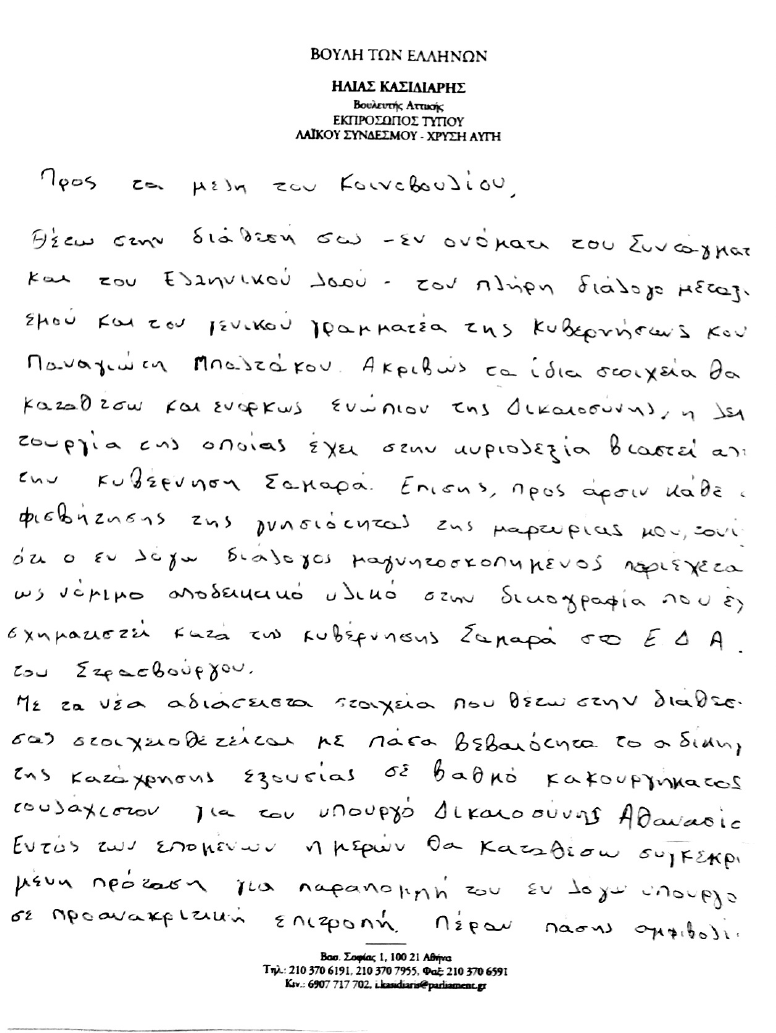 ΒΟΥΛΗ ΤΩΝ ΕΛΛΗΝΩΝ
ΗΛΙΑΣ ΚΑΣΙΔΙΑΡΗΣ
Βουλευτής Αττικής
ΕΚΠΡΟΣΩΠΟΣ ΤΥΠΟΥ
ΛΑΪΚΟΥ ΣΥΝΔΕΣΜΟΥ - ΧΡΥΣΗ ΑΥΓΗ
Προς τα μελη του Κοινοβουλίου,
Θέτω στην διάθεσή σας -εν ονόματι του Συντάγματ
και του Ελληνικού λαού - τον πλήρη διάλογο μεταξ
εμού και του γενικού γραμματέα της κυβερνήσεως κου
Παναγιώτη Μπαλτάκου. Ακριβώς τα ίδια στοιχεία θα
καταθέσω και ενόρκως ενώπιον της Δικαιοσύνης, η λει
τουργία της οποίας έχει στην κυριολεξία βιαστεί απ
την κυβέρνηση Σαμαρά. Επίσης, προς άρσιν κάθε
φισβήτησης της γνησιότητας της μαρτυρίας μου, τονί
ότι ο εν λόγω διάλογος μαγνητοσκοπημένος περιέχετα
ως νόμιμο αποδεικτικό υλικό στην δικογραφία που έχ
σχηματιστεί κατά της κυβέρνησης Σαμαρά στο Ε Δ Α
του Στρασβούργου.
Με τα νέα αδιάσειστα στοιχεία που θέτω στην διάθεσ
σας στοιχειοθετείται με πάσα βεβαιότητα το αδίκημ
της κατάχρησης εξουσίας σε βαθμό κακουργήματος
τουλάχιστον για τον υπουργό Δικαιοσύνης Αθανασίο
Εντός των επομένων ημερών θα καταθέσω συγκεκρι
μένη πρόταση για παραπομπή του εν λόγω υπουργο
σε προανακριτική επιτροπή. Πέραν πάσης αμφιβολί
Βασ. Σοφίας 1, 100 21 Αθήνα
Τηλ.: 210 370 6191, 210 370 7955, Φαξ: 210 370 6591
Κιν.: 6907 717 702, i.kasidiaris@parliament.gr